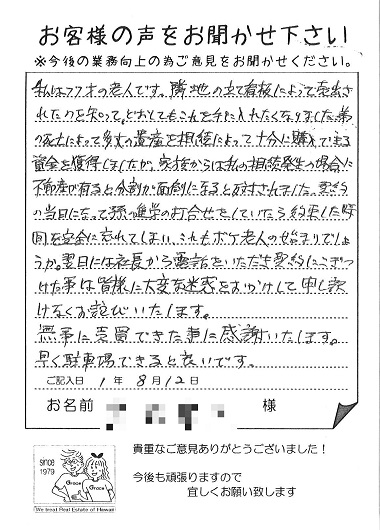 お客様の声をお聞かせ下さい
※今後の業務向上の為ご意見をお聞かせください。
私は77才の老人です。隣地の立て看板によって売出さ
れたのを知って、どおしてもこれを手に入れたくなりました。弟
の死亡によって多少の遺産を相続によって十分に購入できる
資金を獲得しましたが、家族からは私の相続発生の場合に
不動産が有ると分割が面倒になると反対されました。契約
の当日になって孫の進学の打合せをしていたら約束した時
間を完全に忘れてしまい、これもボケ老人の始まりでしょ
うか。翌日には社長から電話をいただき契約にこぎつ
けた事は皆様に大変な迷惑をおかけして申し訳
けなくお詫びいたします。
無事に売買できた事に感謝いたします。
早く駐車場できると良いです。
ご記入日 1 年 8 月 12 日
お名前 様
貴重なご意見ありがとうございました！
今後も頑張りますので
宜しくお願い致します
since
1979
Grace
Grace
We treat Real Estate of Hawaii